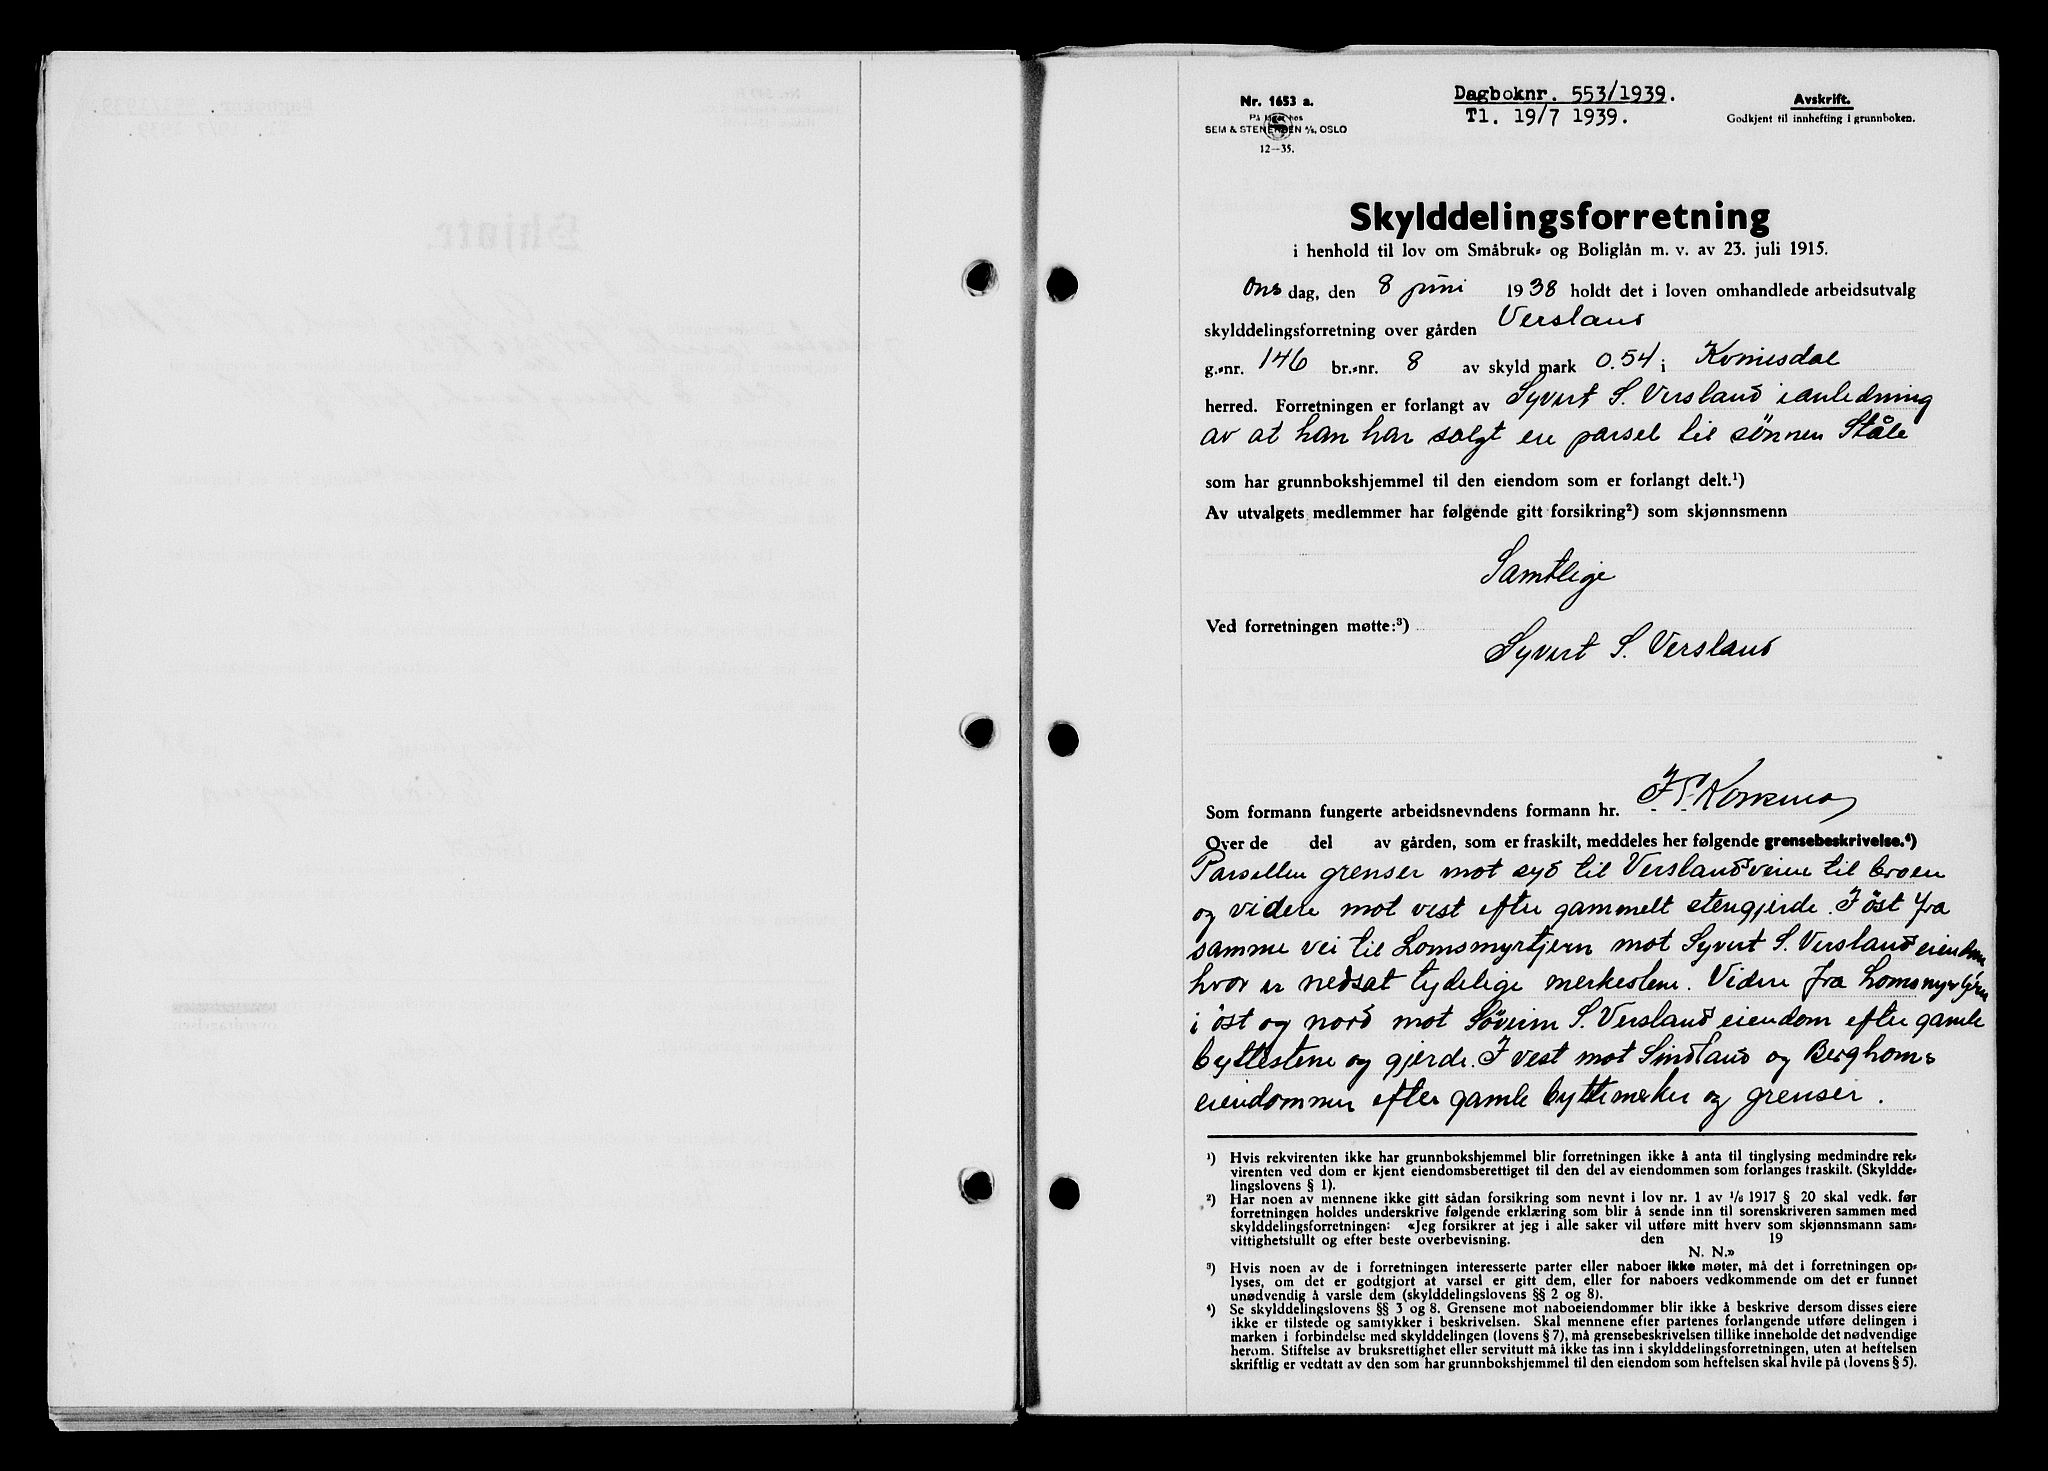 Nr. 1653 a.
På lager hos
SEM & STENERSEN A/S, OSLO
12—35.
Dagboknr. 553/1939.
Tl. 19/7 1939.
Avskrift.
Godkjent til innhefting i grunnboken.
Skylddelingsforretning
i henhold til lov om Småbruk- og Boliglån m. v. av 23. juli 1915.
Ons dag, den 8 juni 1938 holdt det i loven omhandlede arbeidsutvalg
skylddelingsforretning over gården Versland
g.-nr. 146 br.-nr. 8 av skyld mark 0.54 i Kvinesdal
herred. Forretningen er forlangt av Syvert S. Versland i anledning
av at han har solgt en parsel til sönnen Ståle
som har grunnbokshjemmel til den eiendom som er forlangt delt.¹)
Av utvalgets medlemmer har følgende gitt forsikring²) som skjønnsmenn
Samtlige
Ved forretningen møtte:³)
Syvert S. Versland
Som formann fungerte arbeidsnevndens formann hr.
Over de del av gården, som er fraskilt, meddeles her følgende grensebeskrivelse.⁴)
Parsellen grenser mot syd til Verslandsveien til broen
og videre mot vest efter gammelt stengjerde. I öst fra
samme vei til Lomsmyrtjern mot Syvert S. Versland eiendom
hvor er nedsat tydelige merkestene. Videre fra Lomsmyrtjern
i öst og nord mot Söverin S. Versland eiendom efter gamle
byttestene og gjerde. I vest mot Sindland og Berghoms
eiendommer efter gamle byttemerker og grenser.
¹) Hvis rekvirenten ikke har grunnbokshjemmel blir forretningen ikke å anta til tinglysing medmindre rek-
virenten ved dom er kjent eiendomsberettiget til den del av eiendommen som forlanges fraskilt. (Skyldde-
lingslovens § 1).
²) Har noen av mennene ikke gitt sådan forsikring som nevnt i lov nr. 1 av 1/6 1917 § 20 skal vedk. før
forretningen holdes underskrive følgende erklæring som blir å sende inn til sorenskriveren sammen med
skylddelingsforretningen: «Jeg forsikrer at jeg i alle saker vil utføre mitt hverv som skjønnsmann sam-
vittighetsfullt og efter beste overbevisning. den 19
N. N.»
³) Hvis noen av de i forretningen interesserte parter eller naboer ikke møter, må det i forretningen op-
lyses, om det er godtgjort at varsel er gitt dem, eller for naboers vedkommende om det er funnet
unødvendig å varsle dem (skylddelingslovens §§ 2 og 8).
⁴) Se skylddelingslovens §§ 3 og 8. Grensene mot naboeiendommer blir ikke å beskrive dersom disses eiere
ikke er tilstede og samtykker i beskrivelsen. Skal mennene efter partenes forlangende utføre delingen i
marken i forbindelse med skylddelingen (lovens § 7), må grensebeskrivelsen tillike inneholde det nødvendige
herom. Stiftelse av bruksrettighet eller servitutt må ikke tas inn i skylddelingsforretningen, uten at heftelsen
skriftlig er vedtatt av den som har grunnbokshjemmel til den eiendom som heftelsen skal hvile på (lovens § 5).